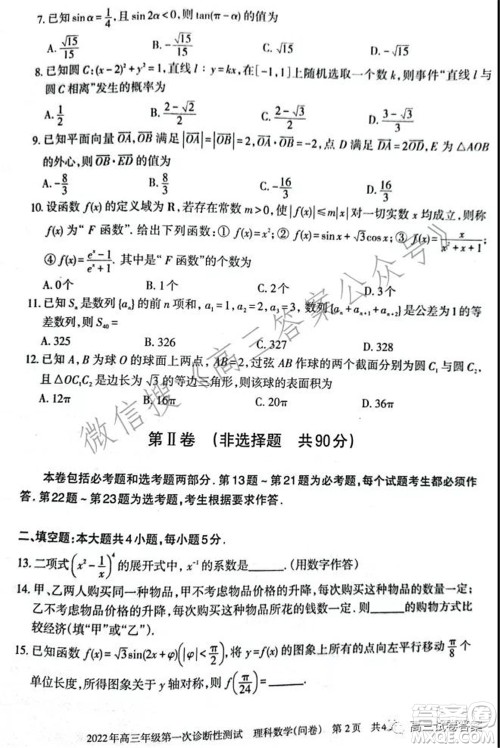 7. 已知 sinα = 1/4, 且 sin2α<0, 则 tan(π-α) 的值为
A. √15/15 B. -√15/15 C. √15 D. -√15
8. 已知圆 C: (x-2)²+y²=1, 直线 l: y=kx, 在[-1,1]上随机选取一个数 k, 则事件“直线 l 与
圆 C 相离”发生的概率为
A. 1/2 B. (2-√2)/2 C. (3-√3)/3 D. (3-√3)/3
9. 已知平面向量 OA, OB 满足 |OA|=|OB|=2, OA·OB=-2, 点 D 满足 DA=2OD, E 为 △AOB
的外心, 则 OB·ED 的值为
A. -8/3 B. 8/3 C. -16/3 D. 16/3
10. 设函数 f(x) 的定义域为 R, 若存在常数 m>0, 使 |f(x)|≤m|x| 对一切实数 x 均成立, 则称
f(x) 为“F 函数”. 给出下列函数: ① f(x)=x²; ② f(x)=sinx+√3cosx; ③ f(x)=x/(x²+x+1);
④ f(x)=(eˣ-1)/(eˣ+1). 其中是“F 函数”的个数为
A. 0个 B. 1个 C. 2个 D. 3个
11. 已知 Sₙ 是数列{aₙ}的前 n 项和, a₁=1, a₂=2, a₃=3, 数列{aₙ+aₙ₊₁+aₙ₊₂}是公差为1的等
差数列, 则 S₄₀=
A. 325 B. 326 C. 327 D. 328
12. 已知 A, B 为球 O 的球面上两点, AB=2, 过弦 AB 作球的两个截面分别为圆 C₁ 与圆 C₂,
且△OC₁C₂ 是边长为 √3 的等边三角形, 则该球的表面积为
A. 12π B. 16π C. 20π
第Ⅱ卷 (非选择题 共90分)
本卷包括必考题和选考题两部分. 第13题~第21题为必考题, 每个试题考生都必须作
答. 第22题~第23题为选考题, 考生根据要求作答.
二、填空题: 本大题共4小题, 每小题5分.
13. 二项式(x²-1/x)⁴的展开式中, x⁻¹ 的系数是______. (用数字作答)
14. 甲、乙两人购买同一种物品, 甲不考虑物品价格的升降, 每次购买这种物品的数量一定;
乙不考虑物品价格的升降, 每次购买这种物品所花的钱数一定. 则______的购物方式比
较经济(填“甲”或“乙”).
15. 已知函数 f(x)=√3sin(2x+φ)(|φ|≤π/2), 将 y=f(x) 的图象上所有的点向左平行移动 π/8 个
单位长度, 所得图象关于 y 轴对称, 则 f(π/24)=______.
2022年高三年级第一次诊断性测试 理科数学(问卷) 第2页 共4
微信搜《高三答案公众号》
高三试卷答案